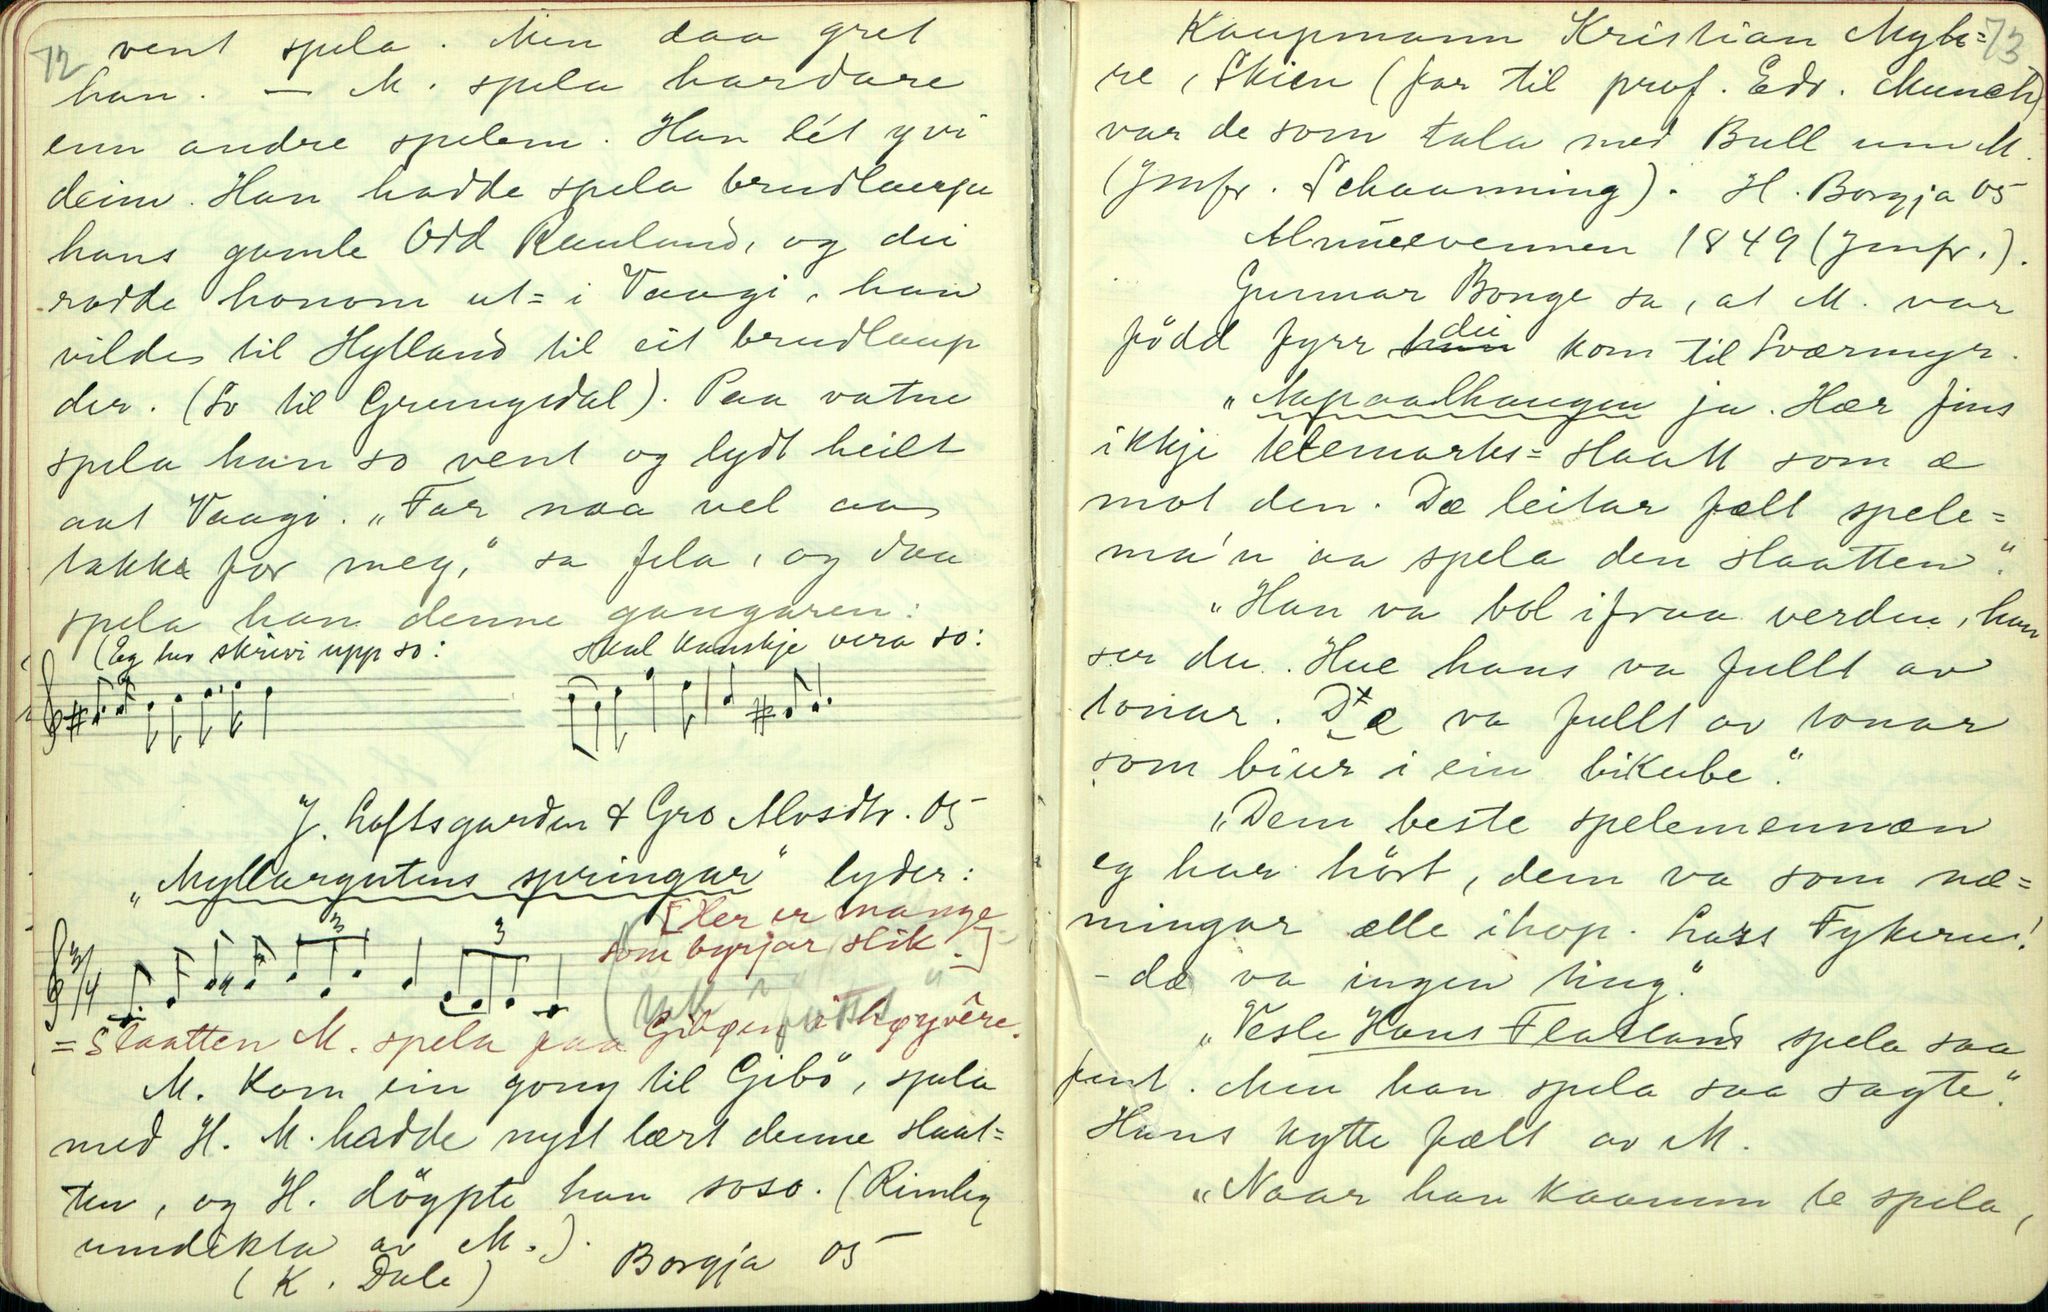 72
vent spela. Men daa gret
han. — M. spela hardare
enn andre spelem. Han lét yvi
deim. Han hadde spela brudlaupa
hans gamle Odd Rauland, og dei
rodde honom ut= i Vaagi, han
vilde til Hylland til eit brudlaup
der. (So til Grungedal). Paa vatne
spela han so vent og lydt heilt
aat Vaagi. „Far naa vel aa
takke for meg," sa fela, og daa
spela han denne gangaren:
(Eg hev skrivi upp so: skal kanskje vera so:
J. Loftsgarden & Gro Alvsdtr. 05
„Myllargutens springar" lyder:
3/4 3 3
[Her er mange
som byrjar slik.]
= Slaatten M. spela paa Gibøen i høgvêre.
M. kom ein gong til Gibö, spela
med H. M. hadde nyst lært denne slaat=
ten, og H. döypte han soso. (Rimleg
umdikta av M.).
(K. Dale) Borgja 05
73
Kaupmann Kristian Myh=
re, Skien (far til prof. Edv. Munch)
var de som tala med Bull um M.
(Jmfr. Schaanning). H. Borgja 05
Almuevennen 1849 (Jmfr.).
Gunnar Bonge sa, at M. var
född fyrr han dei kom til Sværmyr.
„Napaalhaugen ja. Hær fins
ikkje telemarks=slaatt som æ
mot den. Dæ leitar fælt spele=
ma'n aa spela den slaatten".
„Han va bol ifraa verden, han
ser du. Hue hans va fullt av
tonar. Dæ va fullt av tonar
som biur i ein bikube".
„Dem beste spelemennæn
eg har hört, dem va som næ=
mingar ælle ihop. Lars Fykerud!
- dæ va ingen ting."
„Vesle Hans Flatland spela saa
fint. Men han spela saa sagte".
Hans kytte fælt av M.
„Naar han kaamm te spela,